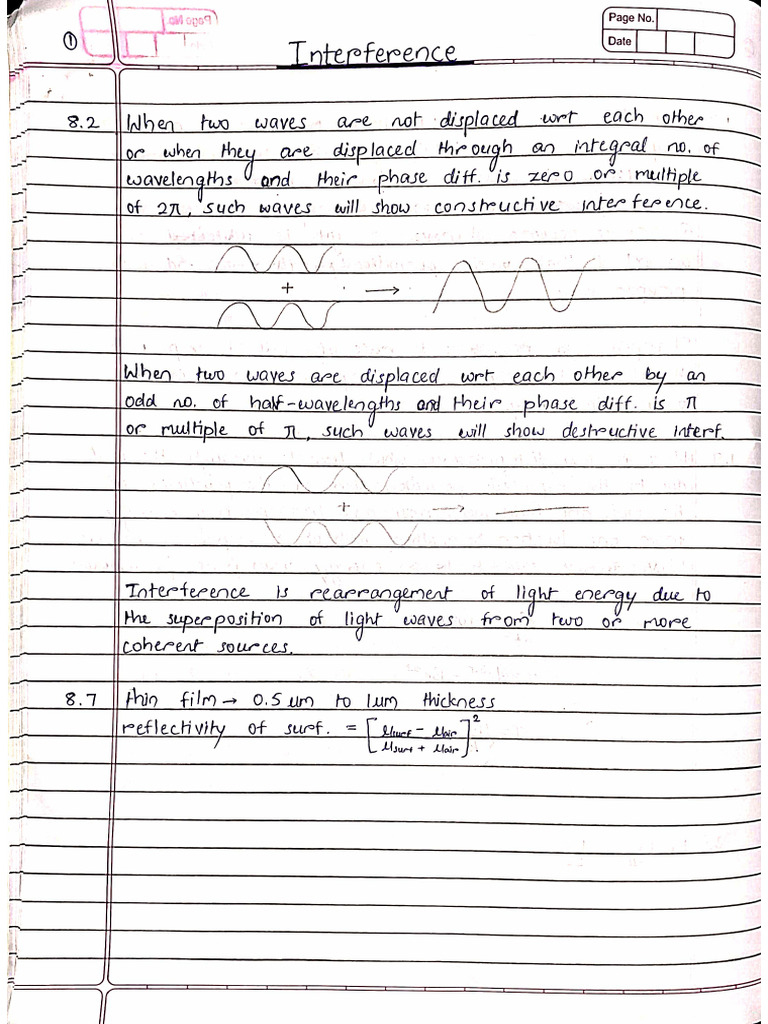 ①
Page No.
Page No.
Date
Interference
8.2 When two waves are not displaced wrt each other
or when they are displaced through an integral no. of
wavelengths and their phase diff. is zero or multiple
of 2π, such waves will show constructive interference.
+ →
When two waves are displaced wrt each other by an
odd no. of half-wavelengths and their phase diff. is π
or multiple of π, such waves will show destructive interf.
+ →
Interference is rearrangement of light energy due to
the superposition of light waves from two or more
coherent sources.
8.7 thin film → 0.5 um to 1um thickness
reflectivity of surf. = [μsurf - μair / μsurf + μair]²